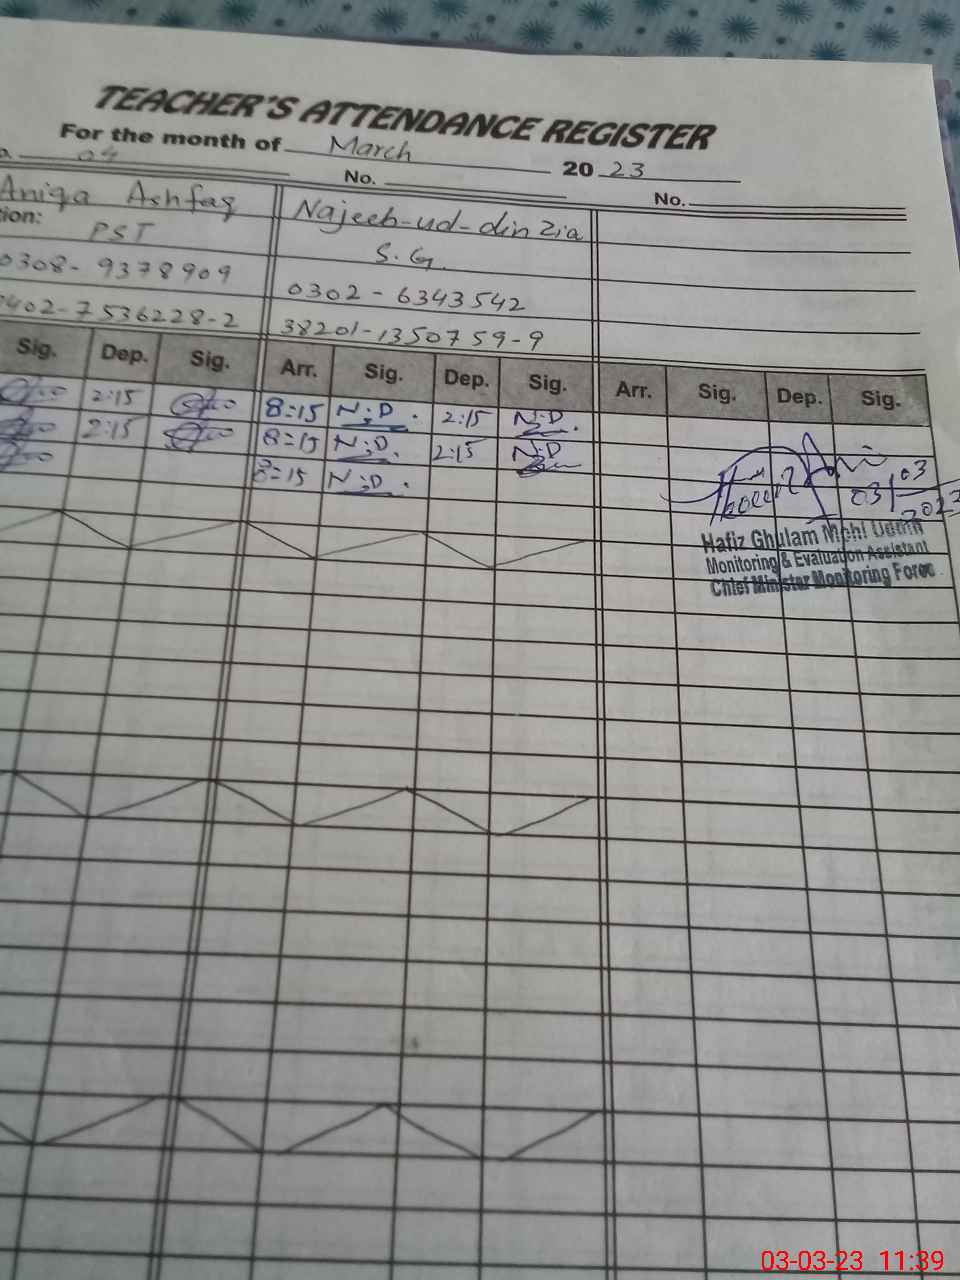 TEACHER'S ATTENDANCE REGISTER
For the month of March 2023
04 No. No.
Aniqa Ashfaq Najeeb-ud-din Zia
tion: PST S.G.
0308-9378909 0302-6343542
402-7536228-2 38201-1350759-9
Sig. Dep. Sig. Arr. Sig. Dep. Sig. Arr. Sig. Dep. Sig.
2:15 8=15 N;D. 2:15 N;D.
2:15 8=15 N;D. 2:15 N;D
8=15 N;D.
03/03/2023
Hafiz Ghulam Mohi Uddin
Monitoring & Evaluation Assistant
Chief Minister Monitoring Force
03-03-23 11:39